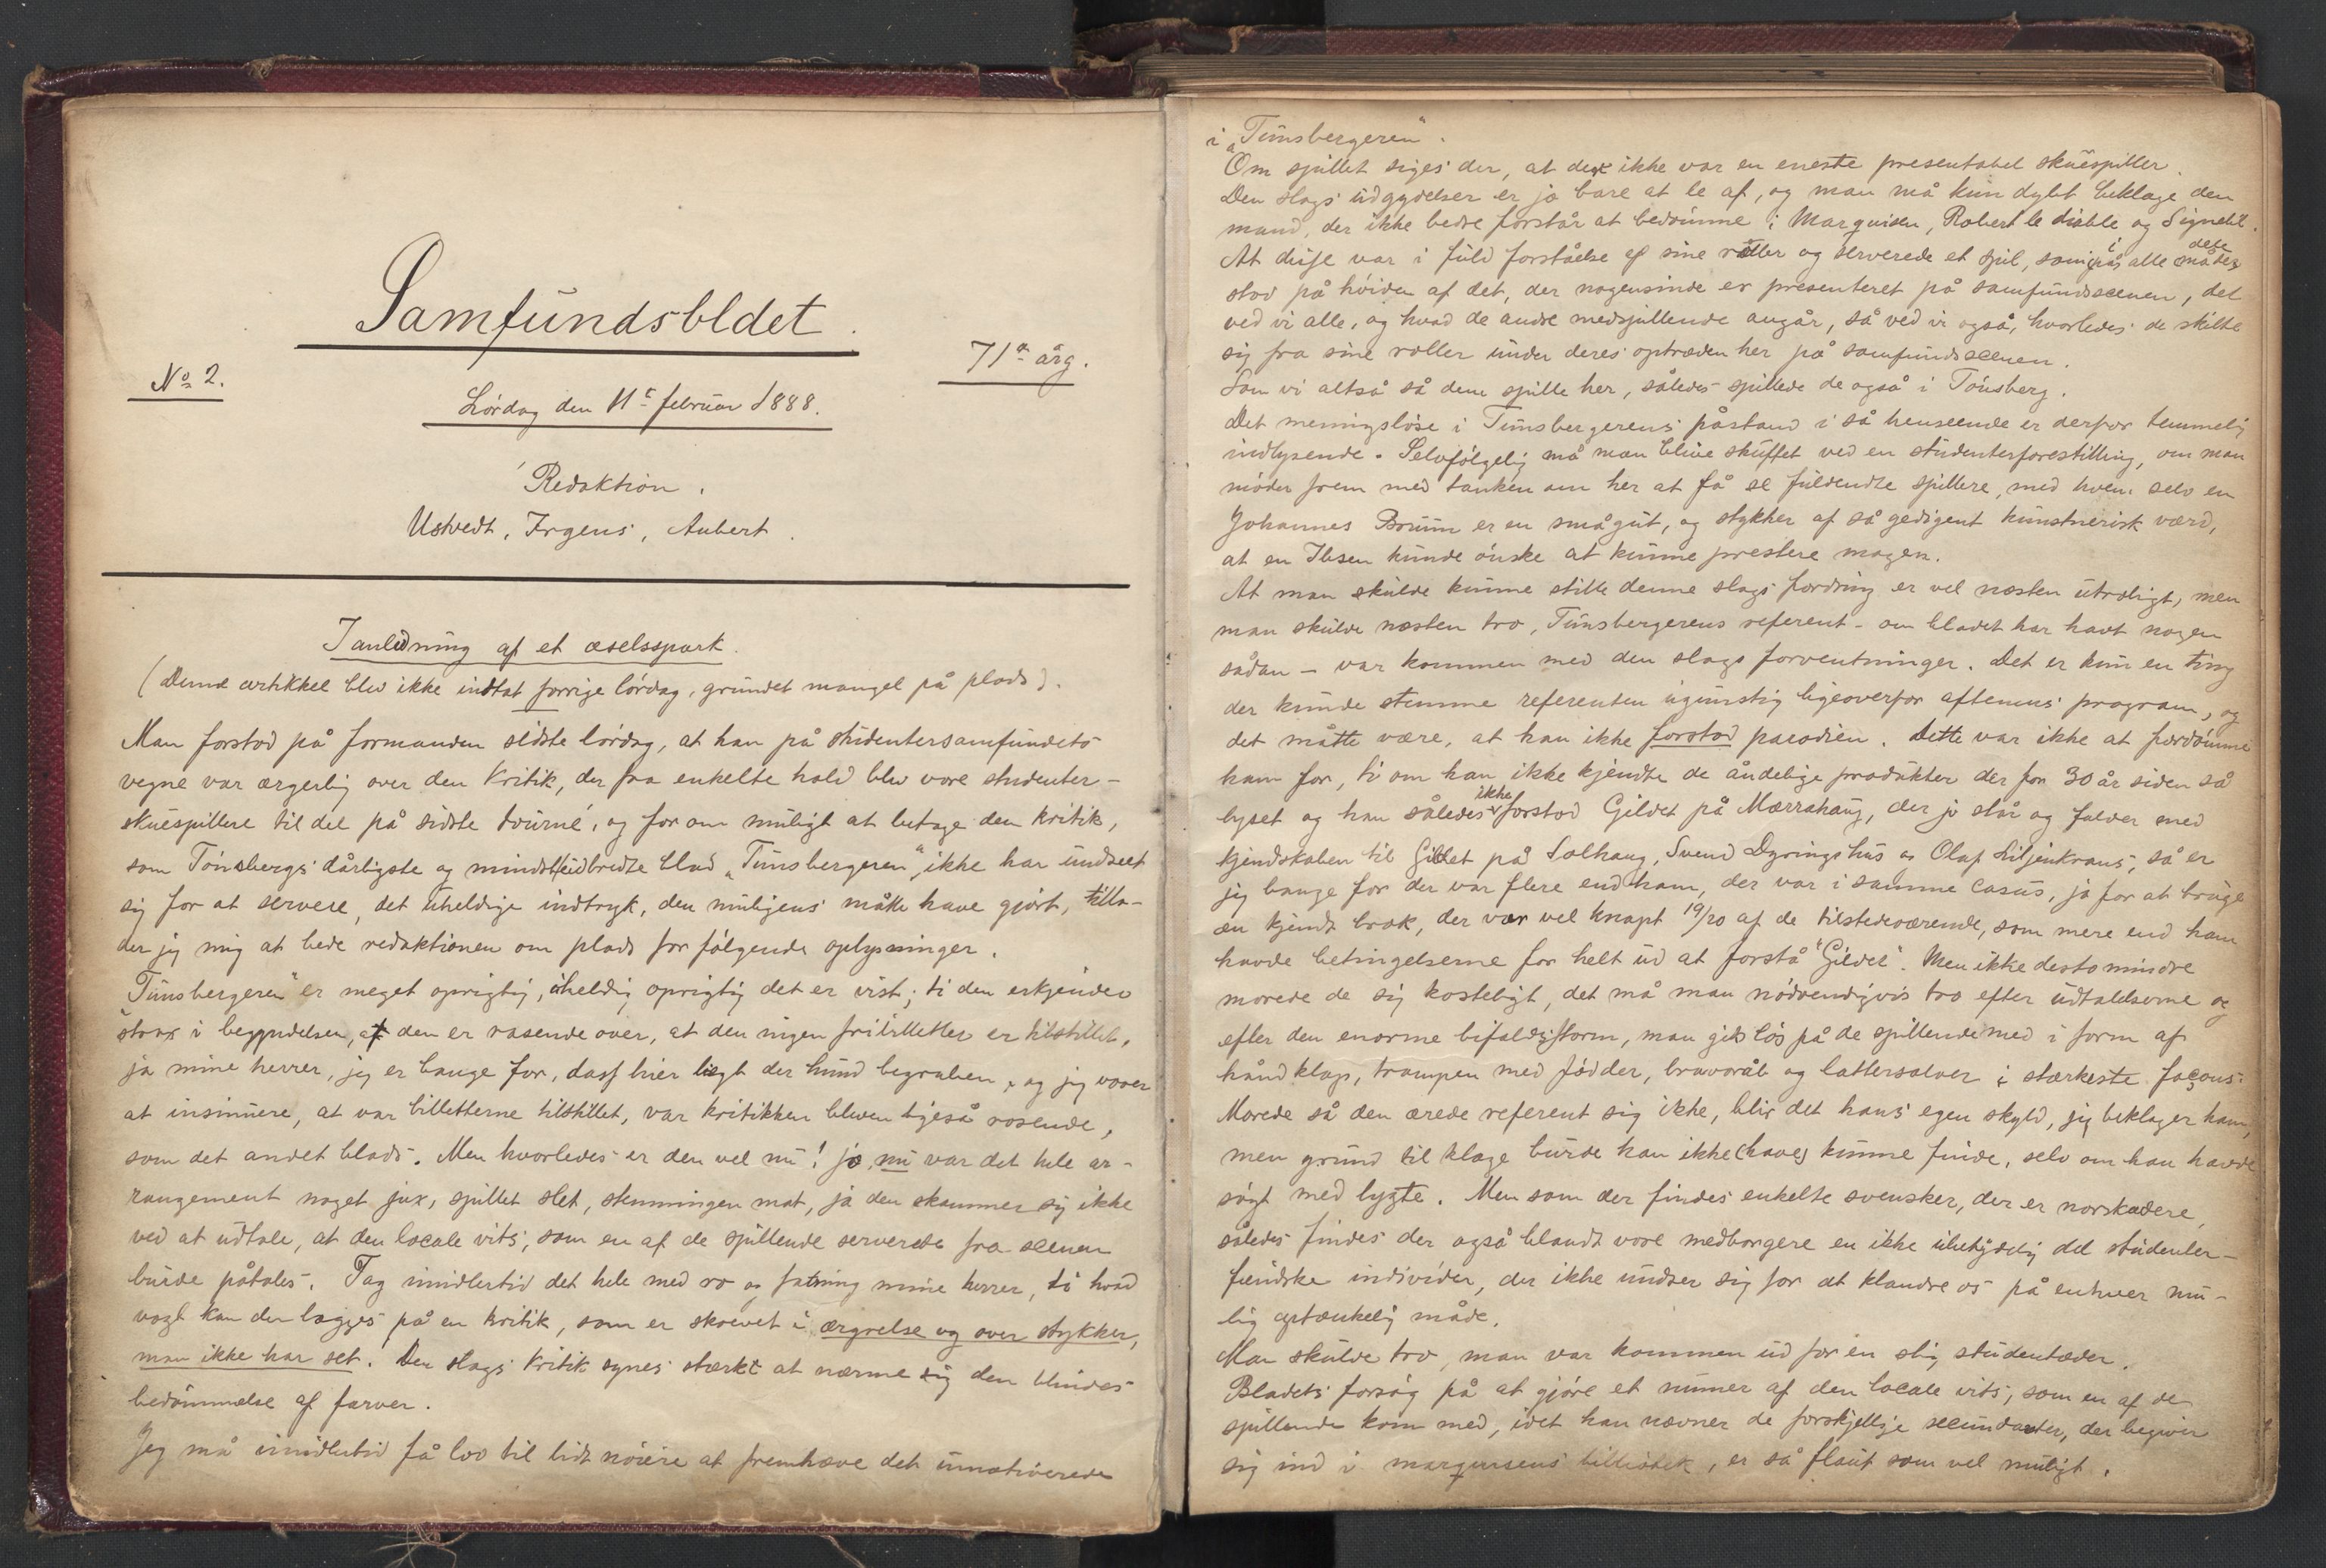 Samfundsbldet.
No 2.
71de årg.
Lördag den 11te februar 1888.
Redaktion.
Ustvedt, Irgens, Aubert.
I anledning af et æselsspark.
(Denne artikkel blev ikke indtat forrige lördag, grundet mangel på plads).
Man forstod på formanden sidste lördag, at han på studentersamfundets
vegne var ærgerlig over den kritik, der fra enkelte hold blev vore studenter-
skuespillere til del på sidste tourné, og for om muligt at betage den kritik,
som Tönsbergs dårligste og mindst udbredte blad „Tunsbergeren", ikke har undseet
sig for at servere, det uheldige indtryk, den muligens måtte have gjört, tilla-
der jeg mig at bede redaktionen om plads for fölgende oplysninger.
„Tunsbergeren" er meget oprigtig, uheldig oprigtig det er vist; ti den erkjender
strax i begyndelsen, at den er rasende over, at den ingen fribilletter er tilstillet,
ja mine herrer, jeg er bange for, dass hier liegt der hund begraben, og jeg vover
at insinuere, at var billetterne tilstillet, var kritikken bleven ligeså rosende,
som det andet blads. Men hvorledes er den vel nu! jo, nu var det hele ar-
rangement noget jux, spillet slet, stemningen mat, ja den skammer sig ikke
ved at udtale, at den locale vits, som en af de spillende serverede fra scenen
burde påtales. Tag imidlertid det hele med ro og fatning mine herrer, ti hvad
vægt kan der lægges på en kritik, som er skrevet i ærgrelse og over stykker,
man ikke har set. Den slags kritik synes stærkt at nærme sig den blindes
bedömmelse af farver.
Jeg må imidlertid få lov til lidt nöiere at fremhæve det umotiverede
i „Tunsbergeren".
Om spillet siges der, at der ikke var en eneste presentabel skuespiller.
Den slags udgydelser er jo bare at le af, og man må kun dybt beklage den
mand, der ikke bedre forstår at bedömme i Marquisen, Robert le diable og Signelil.
At disse var i fuld forståelse af sine roller og serverede et spil, som i alle dele
stod på höiden af det, der nogensinde er presenteret på samfundsscenen, det
ved vi alle, og hvad de andre medspillende angår, så ved vi også, hvorledes de skilte
sig fra sine roller under deres optræden her på samfundsscenen.
Som vi altså så dem spille her, således spillede de også i Tönsberg.
Det meningslöse i Tunsbergerens påstand i så henseende er derfor temmelig
indlysende. Selvfölgelig må man blive skuffet ved en studenterforestilling, om man
möder frem med tanken om her at få se fuldendte spillere, med hvem selv en
Johannes Bruun er en smågut, og stykker af så gedigent kunstnerisk værd,
at en Ibsen kunde önske at kunne prestere magen.
At man skulde kunne stille denne slags fordring er vel næsten utroligt, men
man skulde næsten tro, Tunsbergerens referent – om bladet har havt nogen
sådan – var kommen med den slags forventninger. Det er kun en ting
der kunde stemme referenten ugunstig ligeoverfor aftenens program, og
det måtte være, at han ikke forstod parodien. Dette var ikke at fordömme
ham for, ti om han ikke kjendte de åndelige produkter der for 30 år siden så
lyset og han således ikke forstod Gildet på Mærrahaug, der jo står og falder med
kjendskaben til Gildet på Solhaug, Svend Dyrings hus og Olaf Liljenkrans, så er
jeg bange for der var flere end ham, der var i samme casus, ja for at bruge
en kjendt brøk, der var vel knapt 19/20 af de tilstedeværende, som mere end ham
havde betingelserne for helt ud at forstå "Gildet". Men ikke desto mindre
morede de sig kosteligt, det må man nödvendigvis tro efter udtalelserne og
efter den enorme bifaldsstorm, man gik lös på de spillende med i form af
håndklap, trampen med födder, bravoråb og lattersalver i stærkeste façons.
Morede så den ærede referent sig ikke, blir det hans egen skyld, jeg beklager ham,
men grund til klage burde han ikke (have) kunne finde, selv om han havde
sögt med lygte. Men som der findes enkelte svensker, der er norskædere,
således findes der også blandt vore medborgere en ikke ubetydelig del studenter-
fiendske individer, der ikke undser sig for at klandre os på enhver mu-
lig optænkelig måde.
Man skulde tro, man var kommen ud for en slig studentæder.
Bladets forsög på at gjöre et numer af den locale vits, som en af de
spillende kom med, idet han nævner de forskjellige secundanter, der begiver
sig ind i marquisens bibliotek, er så flaut som vel muligt.